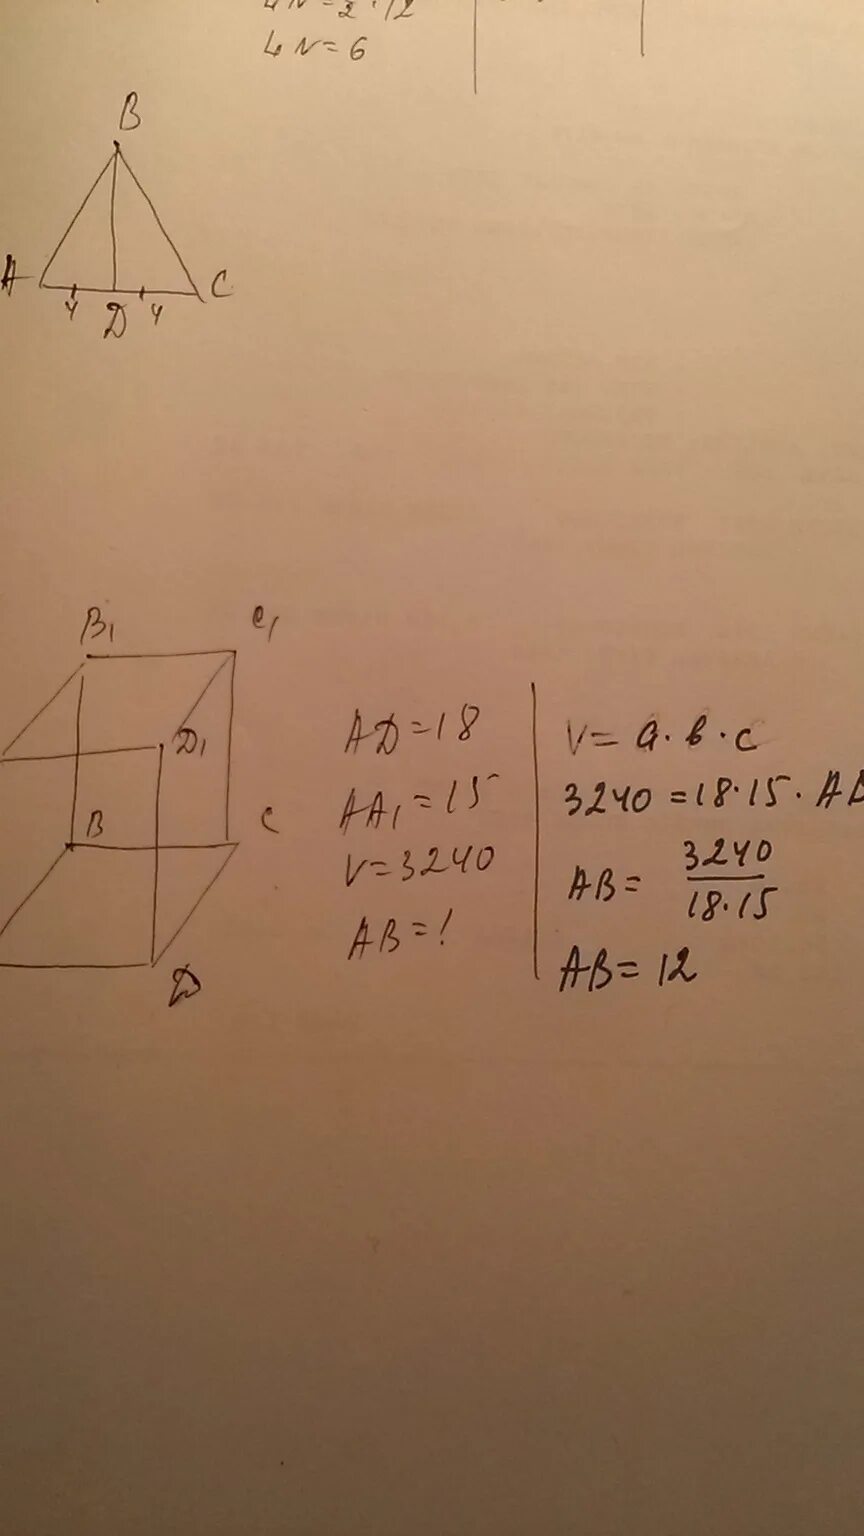 LN=6
B
A
C
4 D 4
B₁
C₁
D₁
B
C
D
AD=18
AA₁=15
V=3240
AB=!
V= a·b·c
3240=18·15·AB
AB= 3240
18·15
AB= 12